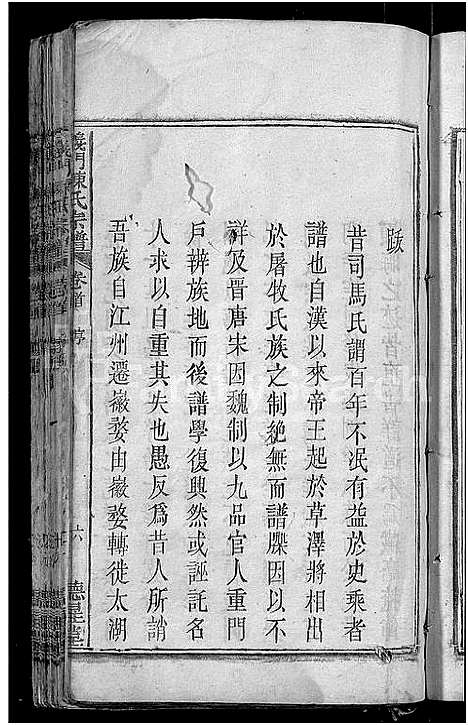 跋
昔司馬氏謂百年不泯有益於史乘者
譜也自漢以來帝王起於草澤將相出
於屠牧氏族之制絕無而譜牒因以不
詳及晋唐宋因魏制以九品官人重門
戶辨族地而後譜學復興然或誣託名
人求以自重其失也愚反為昔人所誚
吾族自江州遷徽婺由徽婺轉徙太湖
義門陳氏宗譜
卷首
序
六
德星堂